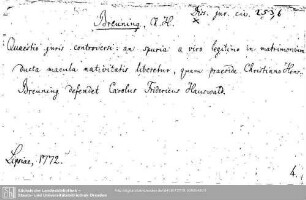 Diss. jur. civ. 253,6
Breuning, C. H.
Quaestio juris controversi: an spuria a viro legitimo in matrimonium
ducta macula nativitatis liberetur, quam praeside Christiano Henr.
Breuning defendet Carolus Fridericus Hauswald.
Lipsiae, 1772.
4.
Sächsische Landesbibliothek -
Staats- und Universitätsbibliothek Dresden